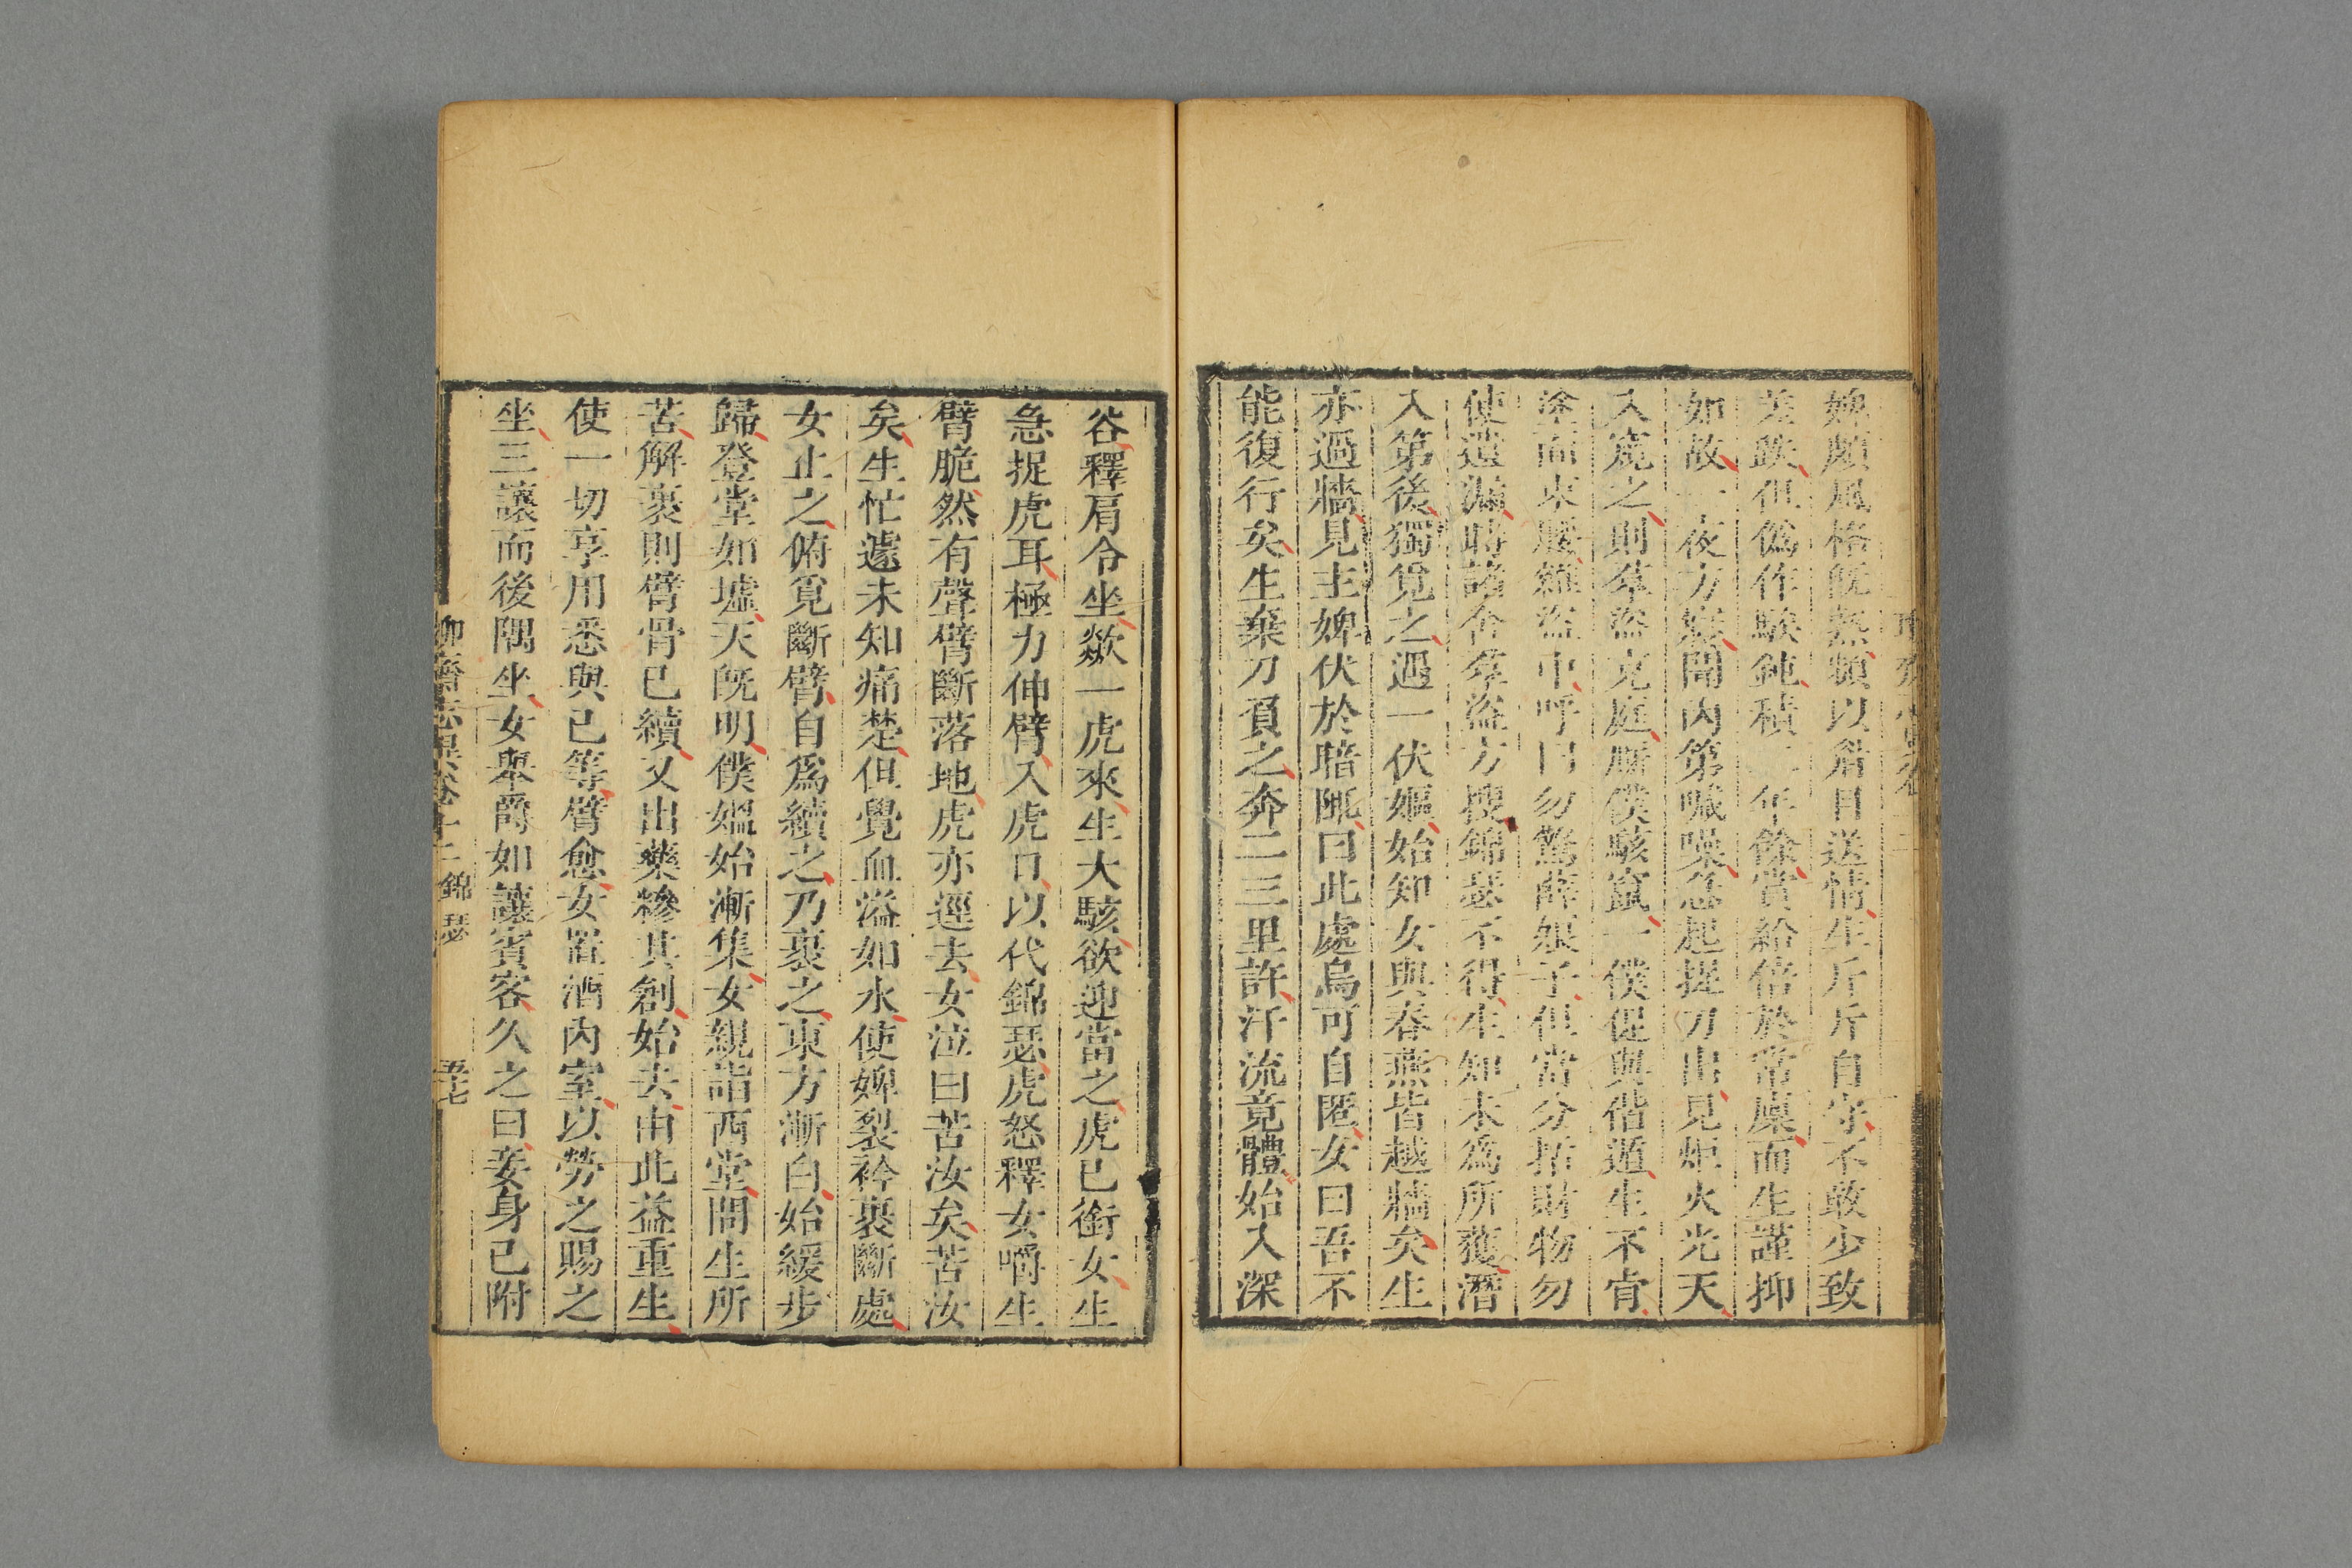 婢頗風格既熟頗以眉目送情生斤斤自守不敢少致
差跌但偽作騃鈍積二年餘賞給倍於常廩而生謹抑
如故一夜方寢聞內第喊噪急起捉刀出見炬火光天
入窺之則羣盜充庭廝僕駭竄一僕促與偕遁生不肯
塗面束腰雜盜中呼曰勿驚薛娘子但當分括財物勿
使遺漏時諸舍羣盜方搜錦瑟不得生知未爲所獲潛
入第後獨覓之遇一伏嫗始知女與春燕皆越牆矣生
亦過牆見主婢伏於暗陬曰此處烏可自匿女曰吾不
能復行矣生棄刀負之奔二三里許汗流竟體始入深
谷釋肩令坐歘一虎來生大駭欲迎當之虎已銜女生
急捉虎耳極力伸臂入虎口以代錦瑟虎怒釋女嚼生
臂脆然有聲臂斷落地虎亦逕去女泣曰苦汝矣苦汝
矣生忙遽未知痛楚但覺血溢如水使婢裂衿裹斷處
女止之俯覓斷臂自爲續之乃裹之東方漸白始緩步
歸登堂如墟天既明僕媼始漸集女親詣西堂問生所
苦解裹則臂骨已續又出藥糝其創始去由此益重生
使一切享用悉與己等臂愈女置酒內室以勞之賜之
坐三讓而後隅坐女舉爵如讓賓客久之曰妾身已附
聊齋志異卷十二 錦瑟 五十七